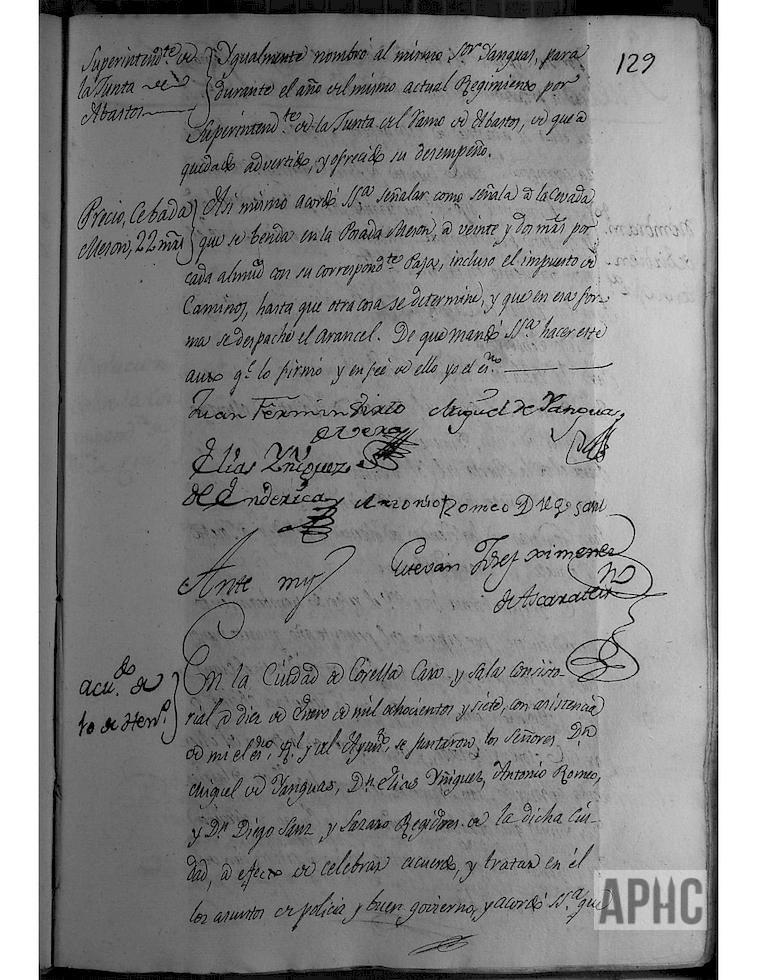 129
Superintend.te de
la Junta de
Abastos
Ygualmente nombró al mismo S.or Yanguas, para
durante el año del mismo actual Regimiento por
Superintend.te de la Junta del Ramo de Abastos, de que a
quedado advertido, y ofrecido su desempeño.
Precio, Cebada
Meson, 22 mrs
Asi mismo acordó SS.a señalar como señala a la Cevada
que se benda en la Posada Meson, a veinte y dos mrs por
cada almud con su correspond.te Paja, incluso el impuesto de
Caminos, hasta que otra cosa se determine, y que en esa for-
ma se despache el Arancel. De que mandó SS.a hacer este
auto q.e lo firmó y en feé de ello yo el es.no
Juan Fermin Sixto Miguel de Yanguas
de Vera
Elias Yñiguez
de Antonio Romeo Diego Sanz
Ante my Estevan Ximenez
de Ascarate
acu.do de
10 de Hen.o
En la Ciudad de Corella Casa y Sala Consisto-
rial a diez de Enero de mil ochocientos y siete, con asistencia
de mi el es.no R.l y del Ayun.to, se juntaron los Señores D.n
Miguel de Yanguas, D.n Elias Yñiguez, Antonio Romeo,
y D.n Diego Sanz y Lazaro Regidores de la dicha Ciu-
dad, a efecto de celebrar acuerdo, y tratar en él
los asuntos de policia y buen govierno, y acordó SS.a que
APHC